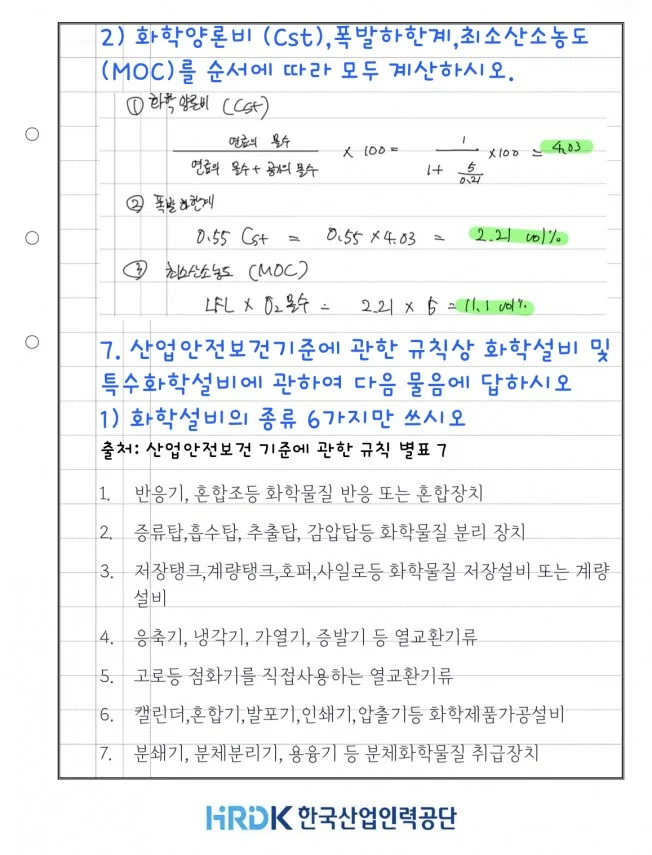 2) 화학양론비 (Cst),폭발하한계,최소산소농도
(MOC)를 순서에 따라 모두 계산하시오.
① 화학양론비 (Cst)
연료의 몰수 / 연료의 몰수 + 공기의 몰수 × 100 = 1 / 1 + 5/0.21 ×100 = 4.03
② 폭발하한계
0.55 Cst = 0.55 × 4.03 = 2.21 vol%
③ 최소산소농도 (MOC)
LFL × O₂ 몰수 = 2.21 × 5 = 11.1 vol%
7. 산업안전보건기준에 관한 규칙상 화학설비 및
특수화학설비에 관하여 다음 물음에 답하시오
1) 화학설비의 종류 6가지만 쓰시오
출처: 산업안전보건 기준에 관한 규칙 별표 7
1. 반응기, 혼합조등 화학물질 반응 또는 혼합장치
2. 증류탑,흡수탑, 추출탑, 감압탑등 화학물질 분리 장치
3. 저장탱크,계량탱크,호퍼,사일로등 화학물질 저장설비 또는 계량
설비
4. 응축기, 냉각기, 가열기, 증발기 등 열교환기류
5. 고로등 점화기를 직접사용하는 열교환기류
6. 캘린더,혼합기,발포기,인쇄기,압출기등 화학제품가공설비
7. 분쇄기, 분체분리기, 용융기 등 분체화학물질 취급장치
HRDK 한국산업인력공단